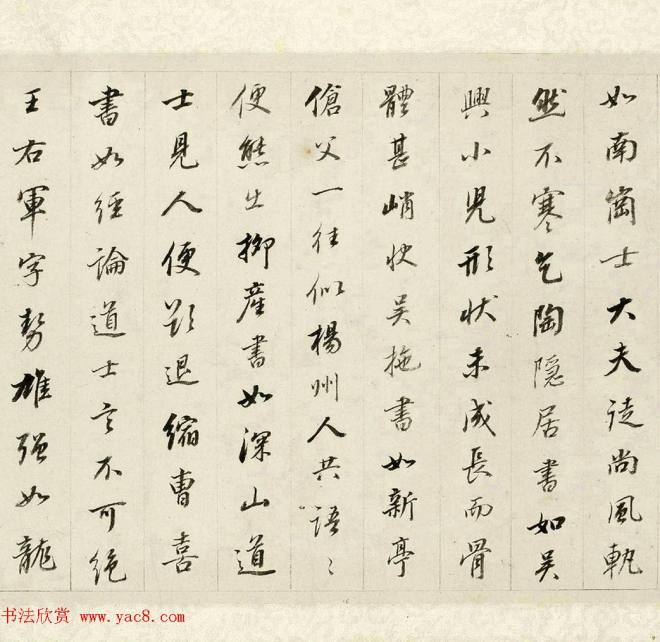 如南崗士大夫徒尚風軌
然不寒乞陶隱居書如吴
興小児形状未成長而骨
體甚峭快吴施書如新亭
傖父一往似楊州人共語〻
便態出柳産書如深山道
士見人便欲退縮曹喜
書如經論道士言不可絶
王右軍字勢雄强如龍
书法欣赏 www.yac8.com